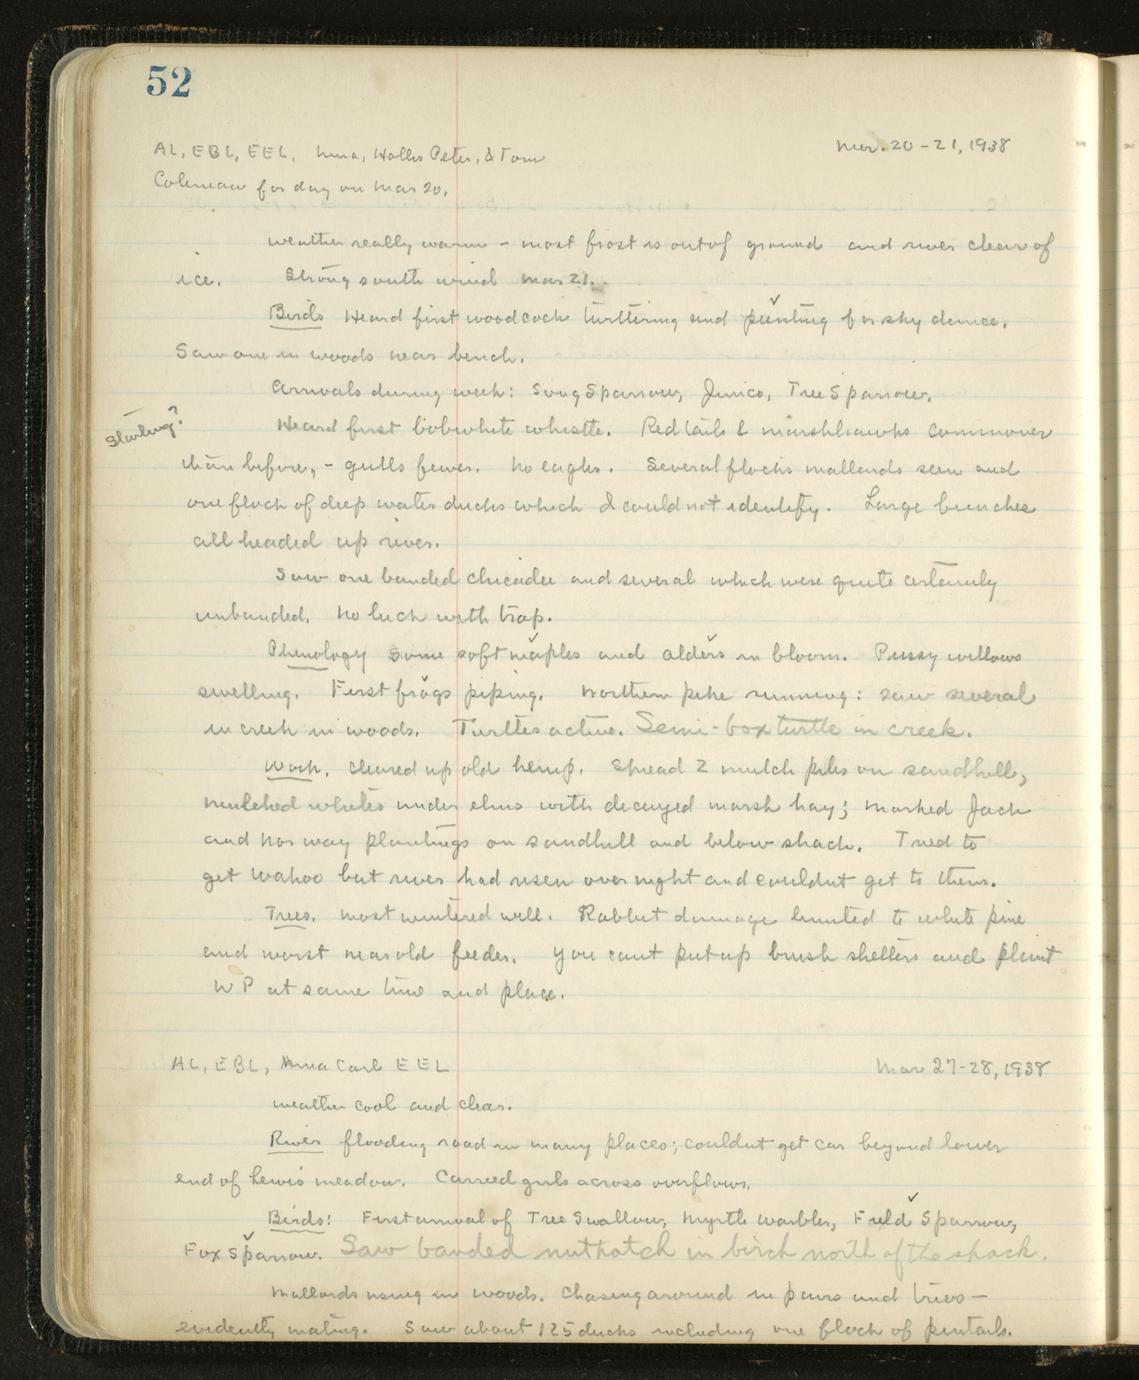 52
AL, EBL, EEL, Nina, Hollis Peter, & Tom
Mar. 20-21, 1938
Coleman for day on Mar 20.
Weather really warm - most frost is out of ground and river clear of
ice. Strong south wind Mar 21.
Birds Heard first woodcock twittering and peenting for sky dance.
Saw one in woods near bench.
Arrivals during week: Song Sparrow, Junco, Tree Sparrow.
Starling?
Heard first bobwhite whistle. Redtails & marshhawks commoner
than before, - gulls fewer. No eagles. Several flocks mallards seen and
one flock of deep water ducks which I could not identify. Large bunches
all headed up river.
Saw one banded chicadee and several which were quite certainly
unbanded. No luck with trap.
Phenology Some soft maples and alders in bloom. Pussy willows
swelling. First frogs piping. Northern pike running: saw several
in creek in woods. Turtles active. Semi-box turtle in creek.
Work. Cleared up old hemp. Spread 2 mulch piles on sandhill,
mulched whites under elms with decayed marsh hay; marked Jack
and Norway plantings on sandhill and below shack. Tried to
get Wahoo but river had risen over night and couldnt get to them.
Trees. Most wintered well. Rabbit damage limited to white pine
and worst near old feeder. You cant put up brush shelters and plant
WP at same time and place.
AL, EBL, Nina Carl EEL
Mar 27-28, 1938
Weather cool and clear.
River flooding road in many places; couldnt get car beyond lower
end of Lewis meadow. Carried girls across overflows.
Birds: First arrival of Tree Swallow, Myrtle Warbler, Field Sparrow,
Fox Sparrow. Saw banded nuthatch in birch north of the shack.
Mallards using in woods. Chasing around in pairs and trios -
evidently mating. Saw about 125 ducks including one flock of pintails.